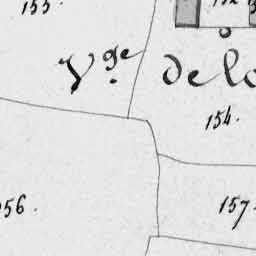 153.
V.ge de la
154.
156.
157.